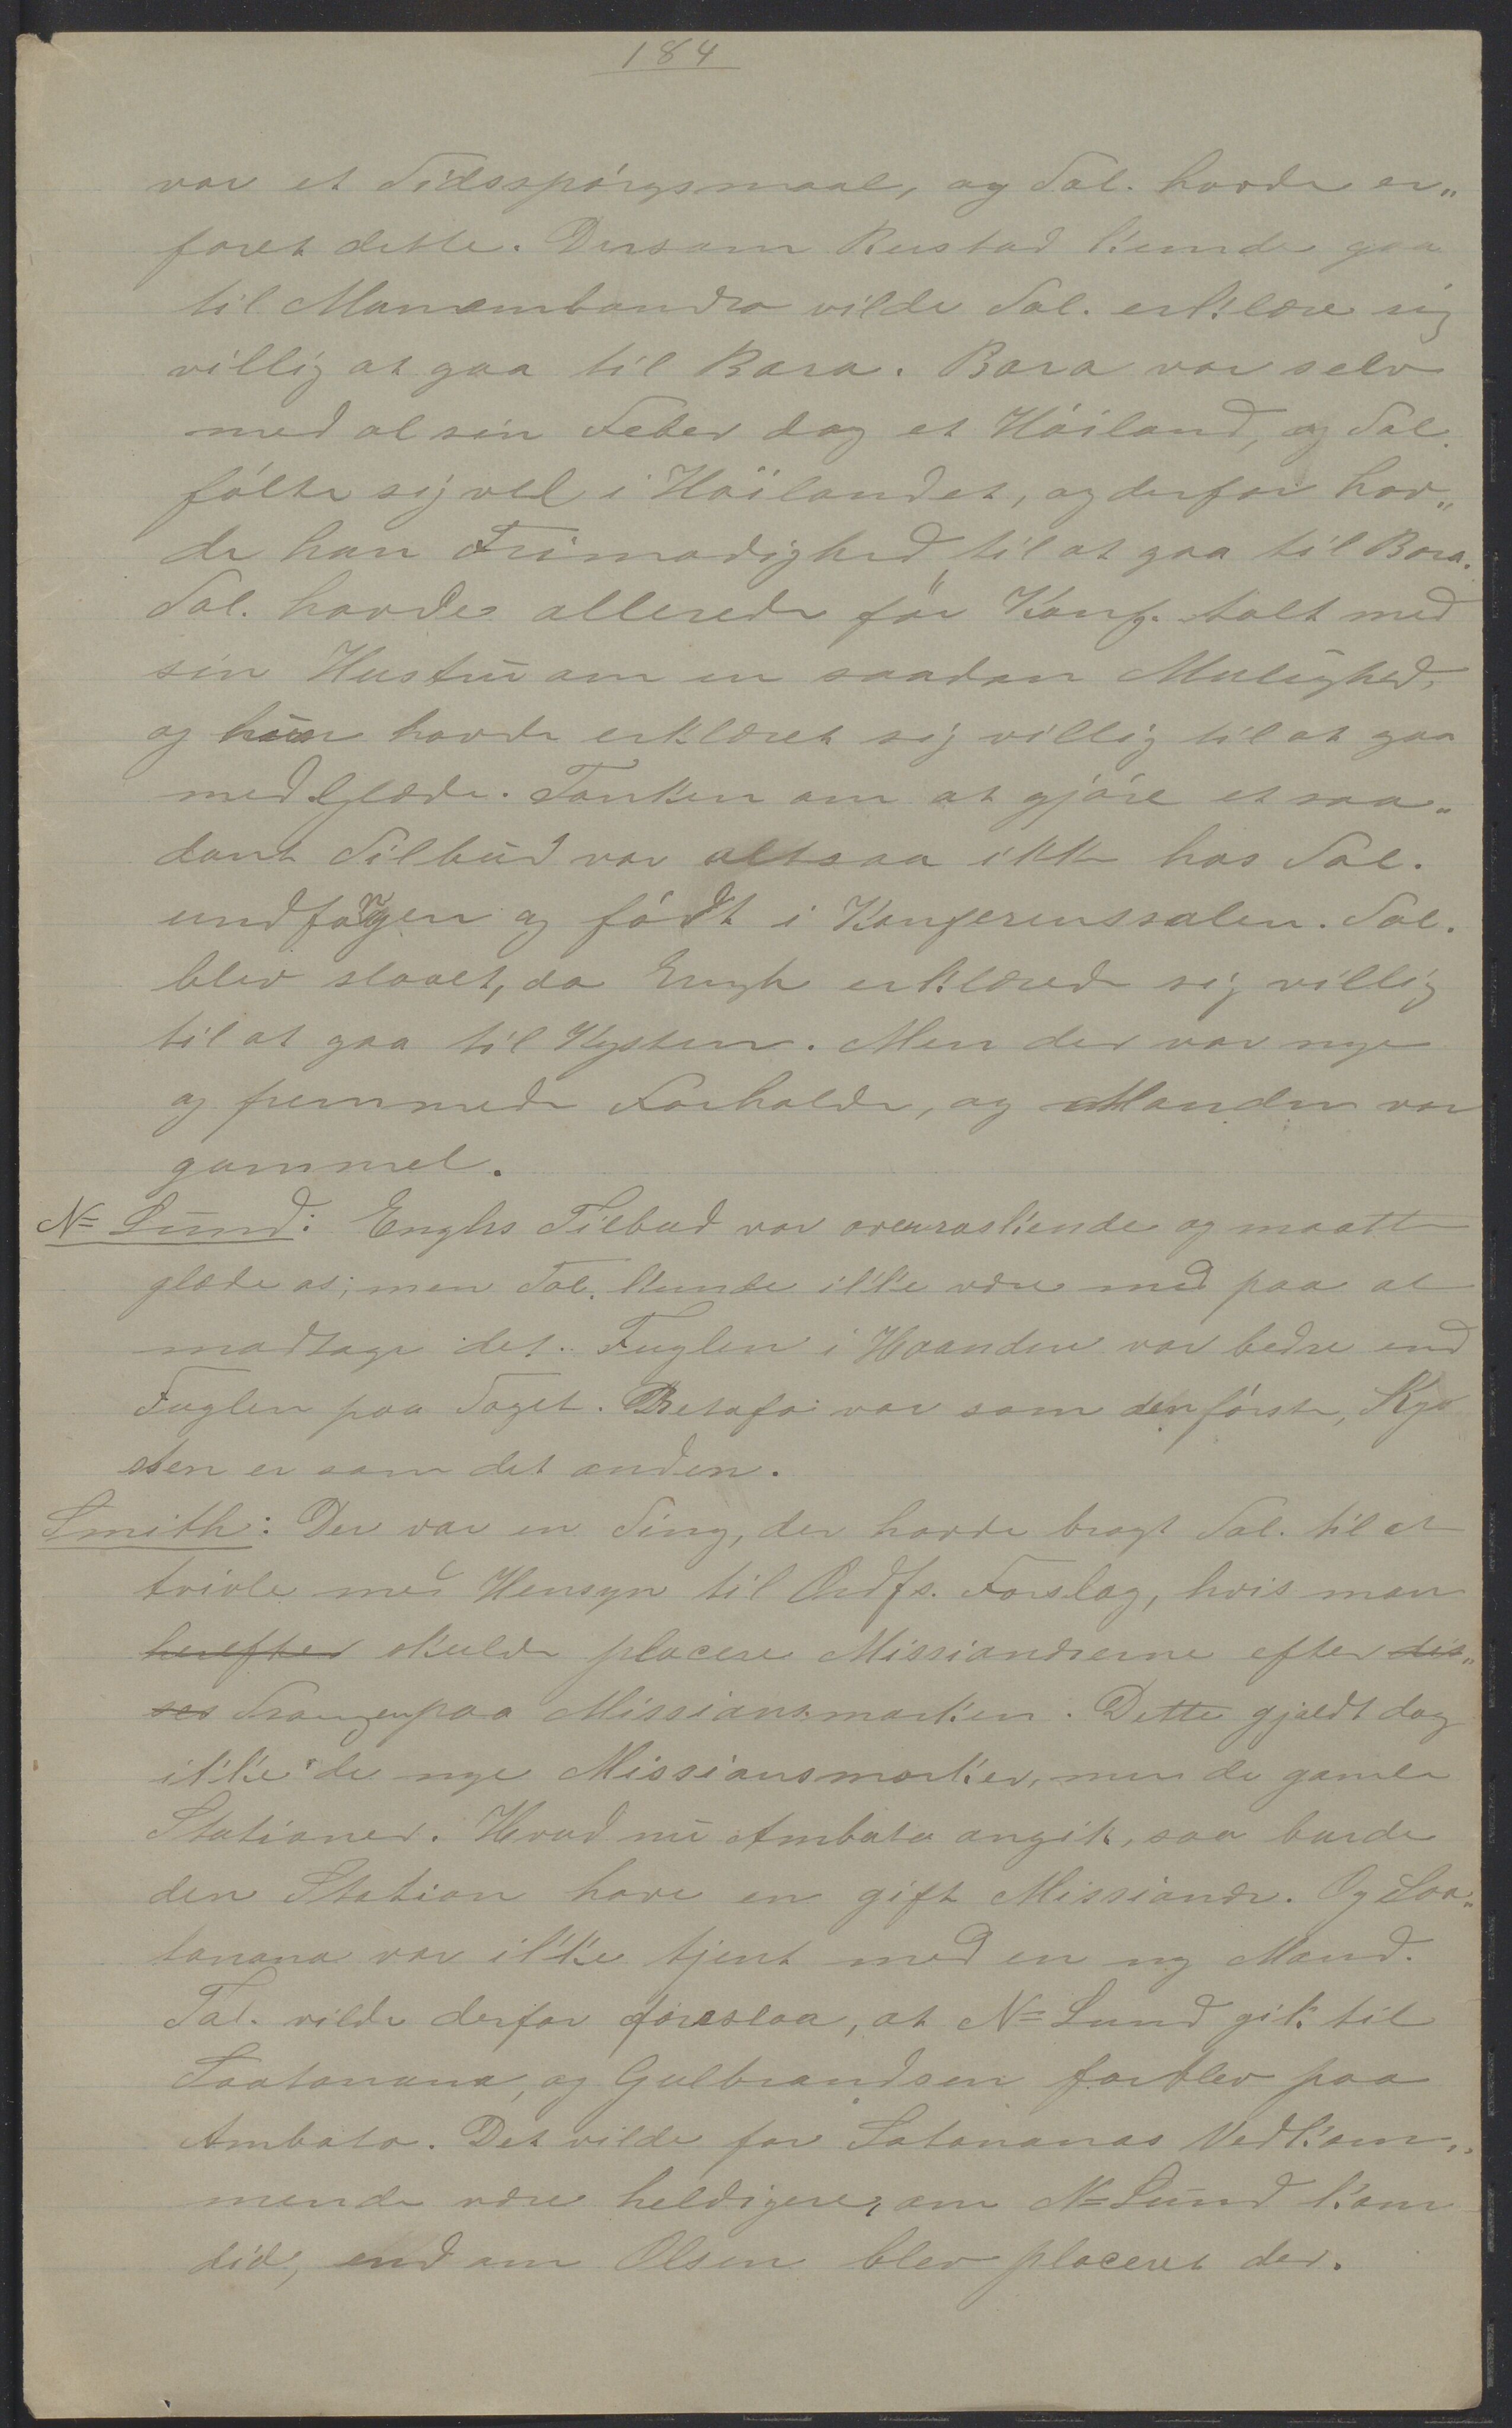 184
var et Tidsspörgsmaal, og Tal. havde er„
faret dette. Dersom Rustad kunde gaa
til Manambondro vilde Tal. erklære sig
villig at gaa til Bara. Bara var selv
med al sin Feber dog et Höiland, og Tal.
fölte sig vel i Höilandet, og derfor hav„
de han Frimodighed til at gaa til Bara.
Tal. havde allerede för Konf. talt med
sin Hustru om en saadan Mulighed,
og hun havde erklæret sig villig til at gaa
med Glæde. Tanken om at gjöre et saa„
dant Tilbud var altsaa ikke hos Tal.
undfangen og födt i Konferenssalen. Tal.
blev slaaet, da Engh erklærede sig villig
til at gaa til Kysten. Men der var nye
og fremmede Forholde, og Manden var
gammel.
N= Lund: Enghs Tilbud var overraskende og maatte
glæde os; men Tal. kunde ikke være med paa at
modtage det. Fuglen i Haanden var bedre end
Fuglen paa Taget. Betafo var som den förste, Ky
sten er som det anden.
Smith: Der var en Ting, der havde bragt Tal. til at
tvivle med Hensyn til Ordfs. Forslag, hvis man
herefter skulde placere Missionærerne efter dis„
ses Trangen paa Missionsmarken. Dette gjældt dog
ikke de nye Missionsmarker, men de gamle
Stationer. Hvad nu Ambato angik, saa burde
den Station have en gift Missionær. Og Soa„
tanana var ikke tjent med en ny Mand.
Tal. vilde derfor foreslaa, at N= Lund gik til
Soatanana, og Gulbrandsen forblev paa
Ambato. Det vilde for Satananas Vedkom„
mende være heldigere, om N= Lund kom
did, end om Olsen blev placeret der.